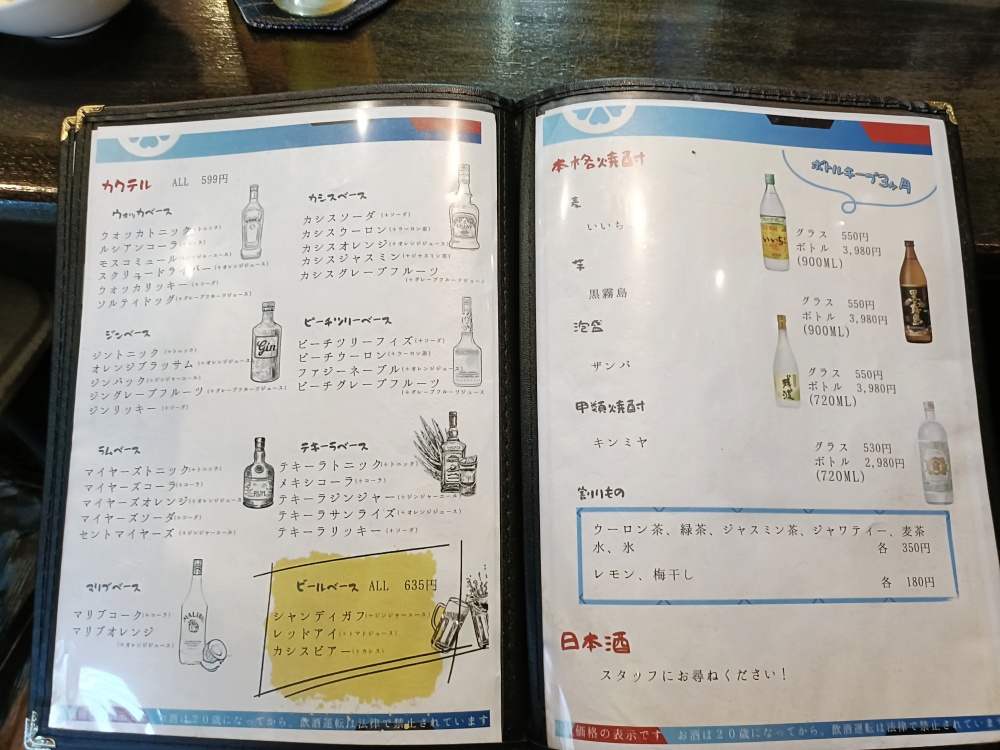 カクテル ALL 599円
ウォッカベース
ウオッカトニック(+トニック)
ルシアンコーラ(+コーラ)
モスコミュール(+ジンジャーエール)
スクリュードライバー(+オレンジジュース)
ウォッカリッキー(+ソーダ)
ソルティドッグ(+グレープフルーツジュース)
カシスベース
カシスソーダ(+ソーダ)
カシスウーロン(+ウーロン茶)
カシスオレンジ(+オレンジジュース)
カシスジャスミン(+ジャスミン茶)
カシスグレープフルーツ
(+グレープフルーツジュース)
ジンベース
ジントニック(+トニック)
オレンジブラッサム(+オレンジジュース)
ジンバック(+ジンジャーエール)
ジングレープフルーツ(+グレープフルーツジュース)
ジンリッキー(+ソーダ)
Gin
ピーチツリーベース
ピーチツリーフィズ(+ソーダ)
ピーチウーロン(+ウーロン茶)
ファジーネーブル(+オレンジジュース)
ピーチグレープフルーツ
(+グレープフルーツジュース)
ラムベース
マイヤーズトニック(+トニック)
マイヤーズコーラ(+コーラ)
マイヤーズオレンジ(+オレンジジュース)
マイヤーズソーダ(+ソーダ)
セントマイヤーズ(+ジンジャーエール)
RUM
テキーラベース
テキーラトニック(+トニック)
メキシコーラ(+コーラ)
テキーラジンジャー(+ジンジャーエール)
テキーラサンライズ(+オレンジジュース)
テキーラリッキー(+ソーダ)
マリブベース
マリブコーク(+コーラ)
マリブオレンジ
(+オレンジジュース)
MALIBU
ビールベース ALL 635円
シャンディガフ(+ジンジャーエール)
レッドアイ(+トマトジュース)
カシスビアー(+カシス)
お酒は20歳になってから、飲酒運転は法律で禁止されています
本格焼酎
ボトルキープ3ヶ月
麦
いいちこ
グラス 550円
ボトル 3,980円
(900ML)
いいちこ
芋
黒霧島
グラス 550円
ボトル 3,980円
(900ML)
黒霧島
泡盛
ザンパ
グラス 550円
ボトル 3,980円
(720ML)
残波
甲類焼酎
キンミヤ
グラス 530円
ボトル 2,980円
(720ML)
割りもの
ウーロン茶、緑茶、ジャスミン茶、ジャワティー、麦茶
水、氷 各 350円
レモン、梅干し 各 180円
日本酒
スタッフにお尋ねください！
価格の表示です お酒は20歳になってから、飲酒運転は法律で禁止されていま